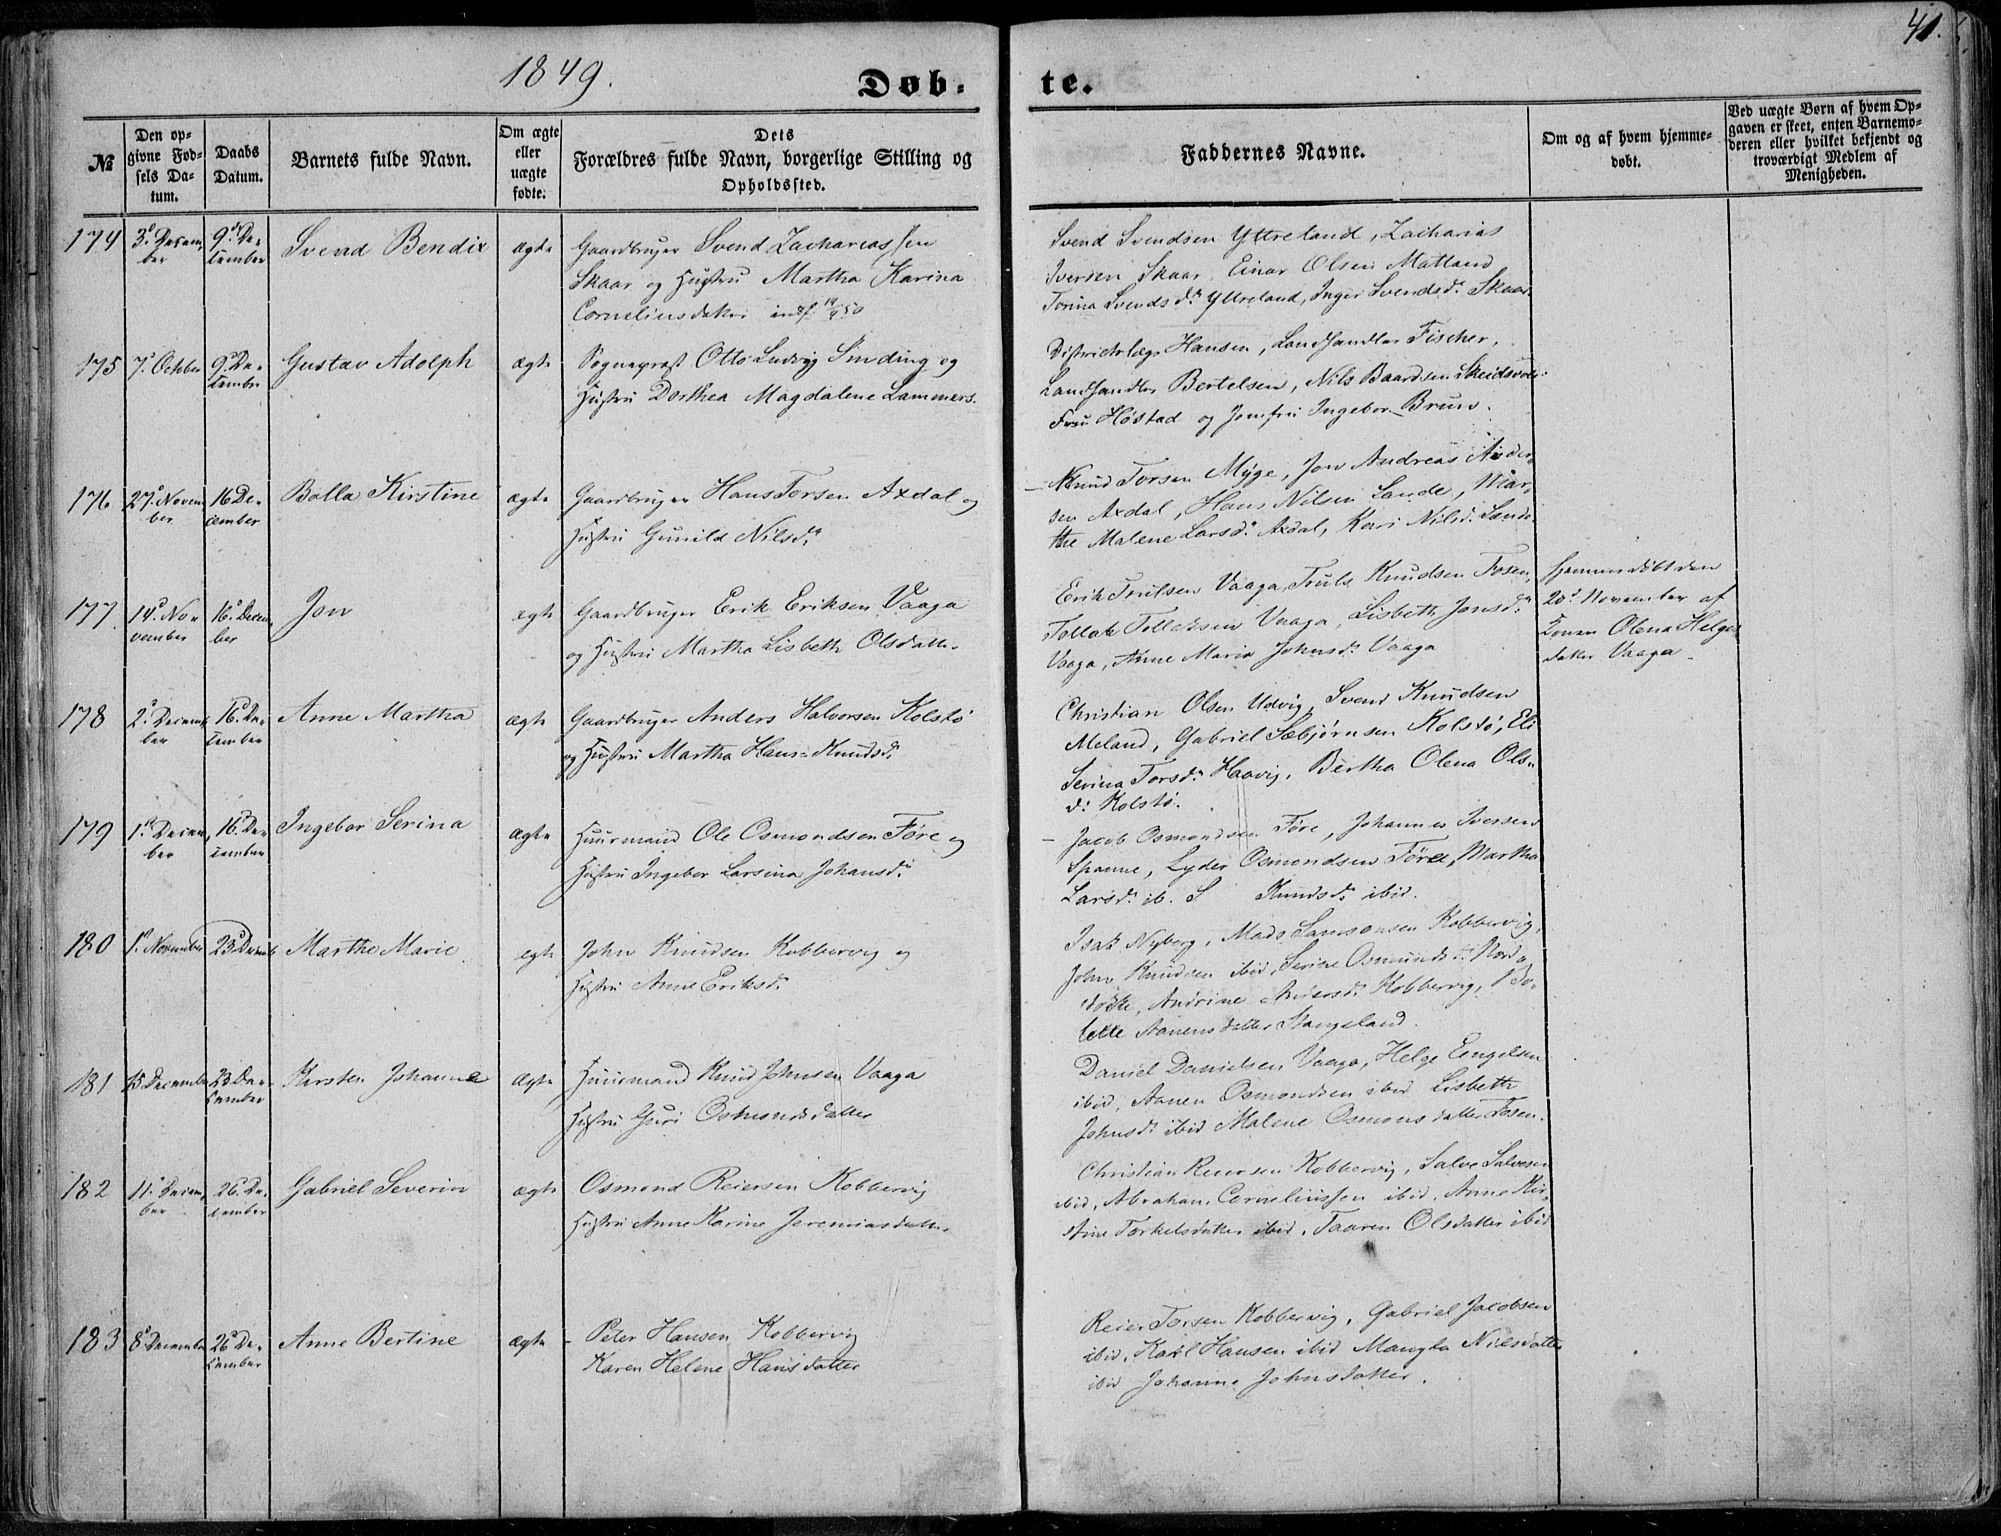 41.
1849.
Døb-
te.
№
Den op-
givne Fød-
sels Da-
tum.
Daabs
Datum.
Barnets fulde Navn.
Om ægte
eller
uægte
fødte.
Dets
Forældres fulde Navn, borgerlige Stilling og
Opholdssted.
Faddernes Navne.
Om og af hvem hjemme-
døbt.
Ved uægte Børn af hvem Op-
gaven er skeet, enten Barnemo-
deren eller hvilket bekjendt og
troværdigt Medlem af
Menigheden.
174
3d Decem
ber
9d De-
cember
Svend Bendix
ægte
Gaardbruger Svend Zachariassen
Skaar og Hustru Martha Karina
Corneliusdatter
Svend Svendsen Yttreland, Zacharias
Iversen Skaar, Einar Olsen Matland
Torina Svendsdr Yttreland, Inger Svendsdr Skaar
175
7d October
9d De-
cember
Gustav Adolph
ægte
Sogneprest Otto Ludvig Sinding og
Hustru Dorthea Magdalene Lammers.
Districtslæge Hansen, Landhandler Fischer,
Landhandler Bertelsen, Nils Baardsen
Fru Høstad og Jomfru Ingebor Bruun.
176
27d Novem
ber
16 De-
cember
Bolla Kirstine
ægte
Gaardbruger Hans Torsen Axdal og
Hustru Gunild Nilsdr
Knud Torsen Myge, Jon Andreas Ander-
sen Axdal, Hans Nilsen Lande, Mar-
the Malene Larsdr Axdal, Kari Nilsdr Lande
177
14d No-
vember
16d Decem
ber
Jon
ægte
Gaardbruger Erik Eriksen Vaaga
og Hustru Martha Lisbeth Olsdatter
Erik Troulsen Vaaga, Trouls Knudsen Fosen,
Tollak Tollaksen Vaaga, Lisbeth Jonsdr
Vaaga, Anne Maria Johnsdr Vaaga
hjemmedøbt den
20d November af
Konen Olena Helges
datter Vaaga
178
2d Decem
ber
16d De-
cember
Anne Martha
ægte
Gaardbruger Anders Halvorsen Kolstø
og Hustru Martha Hans-Knudsdr
Christian Olsen Udvig, Svend Knudsen
Meland, Gabriel Sæbjørnsen Kolstø, Eli
Serina Torsdr Haavig, Bertha Olena Ols-
dr Kolstø.
179
1d Decem
ber
16d De-
cember
Ingebor Serina
ægte
Huusmand Ole Osmondsen Føre og
Hustru Ingebor Larsina Johansdr
Jacob Osmondsen Føre, Johannes Iversen
Spanne, Lyder Osmondsen Føre, Martha
Larsdr ib. S Knudsdr ibid.
180
1d November
23d Decemb
Marthe Marie
egte
John Knudsen Kobbervig og
Hustru Anne Eriksdr
Isak Nyberg, Mads Samsonsen Kobbervig,
John Knudsen ibid, Serine Osmundsdr Nord
Andrine Andersdr Kobbervig, Bo-
lette Aanensdatter Stangeland.
181
15 December
23 De-
cember
Kirsten Johanne
ægte
Huusmand Knud Johnsen Vaaga
Hustru Guri Osmondsdatter
Daniel Danielsen Vaaga, Helge Engelsen
ibid, Aanen Osmondsen ibid Lisbeth
Johnsdr ibid Malene Osmonsdatter Fosen.
182
11d Decem
ber
26d De-
cember
Gabriel Severin
ægte
Osmond Reiersen Kobbervig
Hustru Anne Karine Jeremiasdatter
Christian Reiersen Kobbervig, Salve Salvesen
ibid, Abraham Corneliussen ibid, Anne Kir-
stine Torkelsdatter ibid, Taaren Olsdatter ibid
183
8d December
26d De-
cember
Anne Bertine
ægte
Peter Hansen Kobbervig
Karen Helene Hansdatter
Reier Torsen Kobbervig, Gabriel Jacobsen
ibid, Karl Hansen ibid Mangla Nielsdatter
ibid Johanne Johnsdatter.